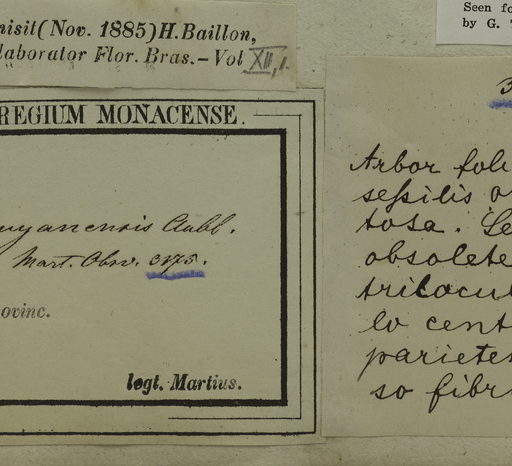 nisit (Nov. 1885) H. Baillon,
llaborator Flor. Bras. – Vol XII, 1.
REGIUM MONACENSE.
uyanensis Aubl.
Mart. Obs. 3175.
ovinc.
legt. Martius.
Seen fo
by G. T
3
Arbor foli
sessilis o
tosa. Se
obsolete
trilocul
lo cent
parieten
so fibr